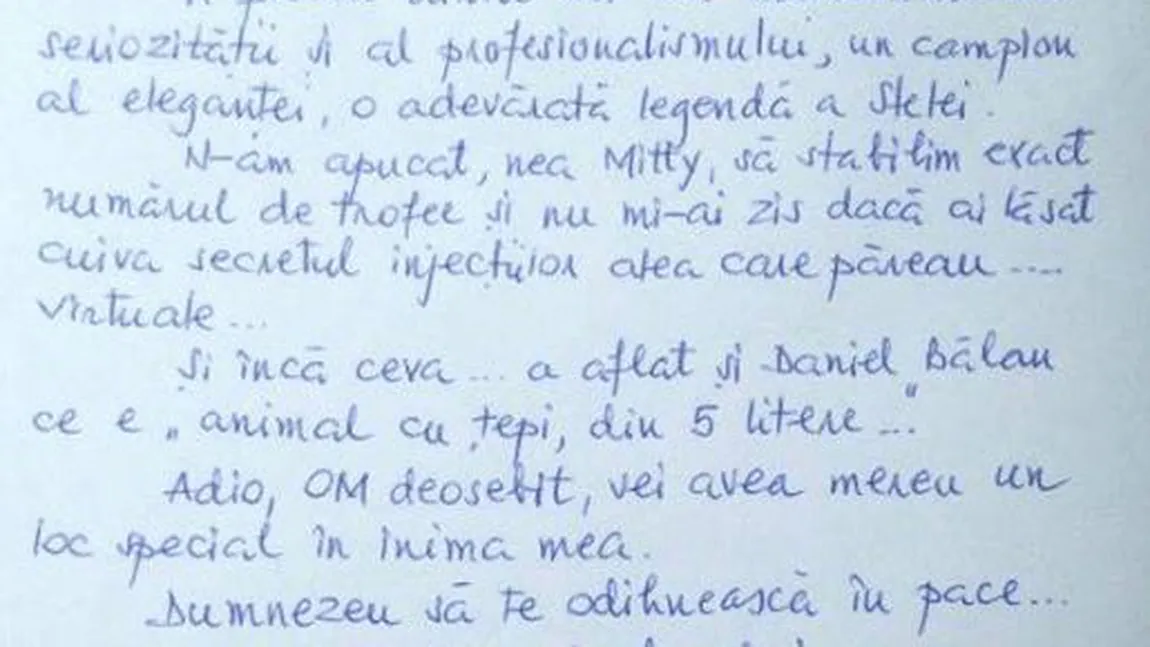 seriozității și al profesionalismului, un campion
al eleganței, o adevărată legendă a Stelei.
N-am apucat, nea Mitty, să stabilim exact
numărul de trofee și nu mi-ai zis dacă ai lăsat
cuiva secretul injecțiilor alea care păreau ....
virtuale ...
Și încă ceva ... a aflat și Daniel Bălan
ce e „animal cu țepi, din 5 litere ..."
Adio, OM deosebit, vei avea mereu un
loc special în inima mea.
Dumnezeu să te odihnească în pace...